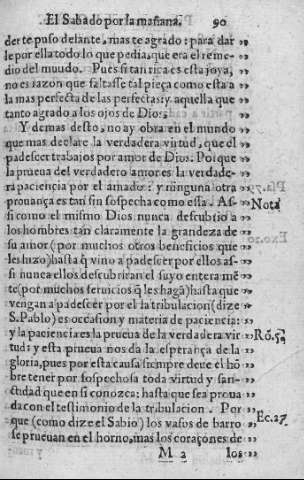 El Sabado por la mañana. 90
der te puso delante, mas te agrado: para dar
le por ella todo lo que pedia, que era el reme-
dio del muudo. Pues si tan rica es esta joya,
no es razon que faltasse tal pieça como esta a
la mas perfecta de las perfectas: y aquella que
tanto agrado a los ojos de Dios.
Y demas desto, no ay obra en el mundo
que mas declare la verdadera virtud, que el
padescer trabajos por amor de Dios. Porque
la prueua del verdadero amor es la verdade-
ra paciencia por el amado: y ninguna otra
prouança es tan sin sospecha como esta. As-
si como el mismo Dios nunca descubrio a
Nota
los hombres tan claramente la grandeza de
su amor (por muchos otros beneficios que
les hizo) hasta q̃ vino a padescer por ellos as-
si nunca ellos descubriran el suyo entera mẽ
te (por muchos seruicios q̃ le hagã) hasta que
vengan a padescer por el la tribulacion (dize
S. Pablo) es occasion y materia de paciencia:
y la paciencia es la prueua de la verdadera vir
Rõ. 5.
tud: y esta prueua nos da la esperança de la
gloria, pues por esta causa siempre deue el hõ
bre tener por sospechosa toda virtud y san-
ctidad que en si conozca: hasta que sea proua
da con el testimonio de la tribulacion. Por
Ec. 27.
que (como dize el Sabio) los vasos de barro
se prueuan en el horno, mas los coraçones de
M 2 los